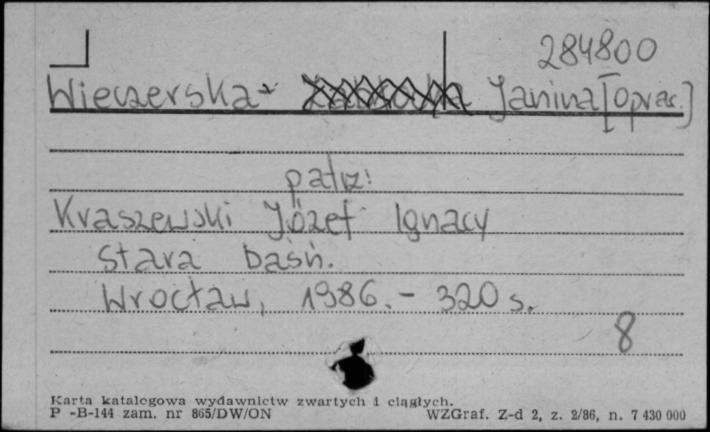 284800
Wieczerska- Janina [oprac.]
patrz:
Kraszewski Józef Ignacy
Stara baśń.
Wrocław, 1986. - 320 s.
8
Karta katalogowa wydawnictw zwartych i ciągłych.
P -B-144 zam. nr 865/DW/ON WZGraf. Z-d 2, z. 2/86, n. 7 430 000